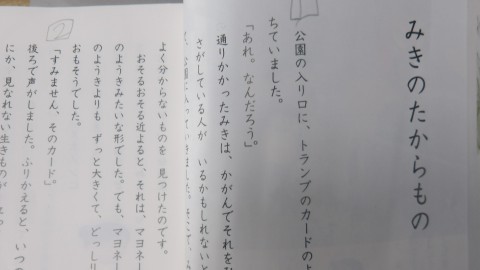 みきのたからもの
1
公園の入り口に、トランプのカードのよ
ちていました。
「あれ。なんだろう。」
通りかかったみきは、かがんでそれをひ
さがしている人が いるかもしれないと
2
よく分からないものを 見つけたのです。
おそるおそる近よると、それは、マヨネー
のようきみたいな形でした。でも、マヨネー
のようきよりも ずっと大きくて、どっしり
おもそうでした。
「すみません、そのカード。」
後ろで声がしました。ふりかえると、いつの
にか、見なれない生きものが